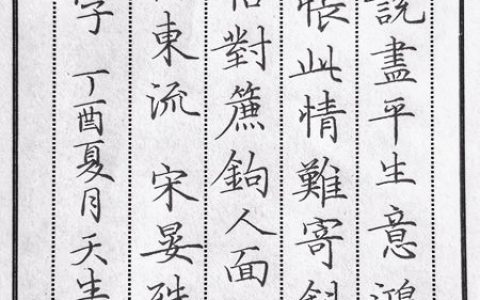 說盡平生意鴻
悵此情難寄斜
恰對簾鈎人面
東流 宋晏殊
字 丁酉夏月天生